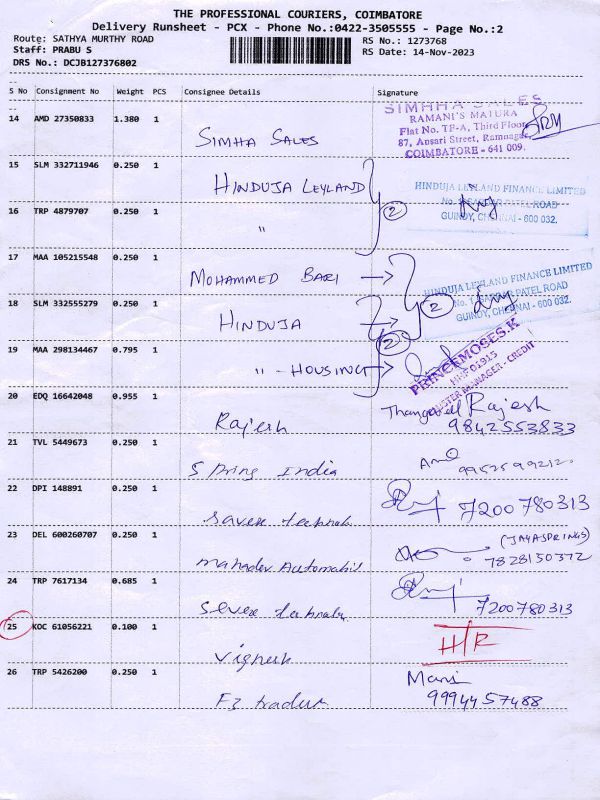 THE PROFESSIONAL COURIERS, COIMBATORE
Delivery Runsheet - PCX - Phone No.:0422-3505555 - Page No.:2
Route: SATHYA MURTHY ROAD
RS No.: 1273768
Staff: PRABU S
RS Date: 14-Nov-2023
DRS No.: DCJB127376802
S No Consignment No Weight PCS Consignee Details Signature
14 AMD 27350833 1.380 1 SIMHA SALES
SIMHHA SALES
RAMANI'S MATURA
Flat No. TF-A, Third Floor
87, Ansari Street, Ramnagar
COIMBATORE - 641 009.
15 SLM 332711946 0.250 1 HINDUJA LEYLAND
16 TRP 4879707 0.250 1 "
2
HINDUJA LEYLAND FINANCE LIMITED
No. 1, SARDAR PATEL ROAD
GUINDY, CHENNAI - 600 032.
17 MAA 105215548 0.250 1 MOHAMMED BARI
18 SLM 332555279 0.250 1 HINDUJA
2
HINDUJA LEYLAND FINANCE LIMITED
No. 1, SARDAR PATEL ROAD
GUINDY, CHENNAI - 600 032.
19 MAA 298134467 0.795 1 " - HOUSING
2
PRINCERMOSES.K
HHF 01915
MANAGER - CREDIT
20 EDQ 16642048 0.955 1 Rajesh
Rajesh
9842553833
21 TVL 5449673 0.250 1 Spring India
22 DPI 148891 0.250 1 savex
7200780313
23 DEL 600260707 0.250 1 mahadev Automobil
(JAYASPRINGS)
7828150372
24 TRP 7617134 0.685 1
7200780313
25 KOC 61056221 0.100 1 Vignesh
HTR
26 TRP 5426200 0.250 1 traders
Mani
9994457488